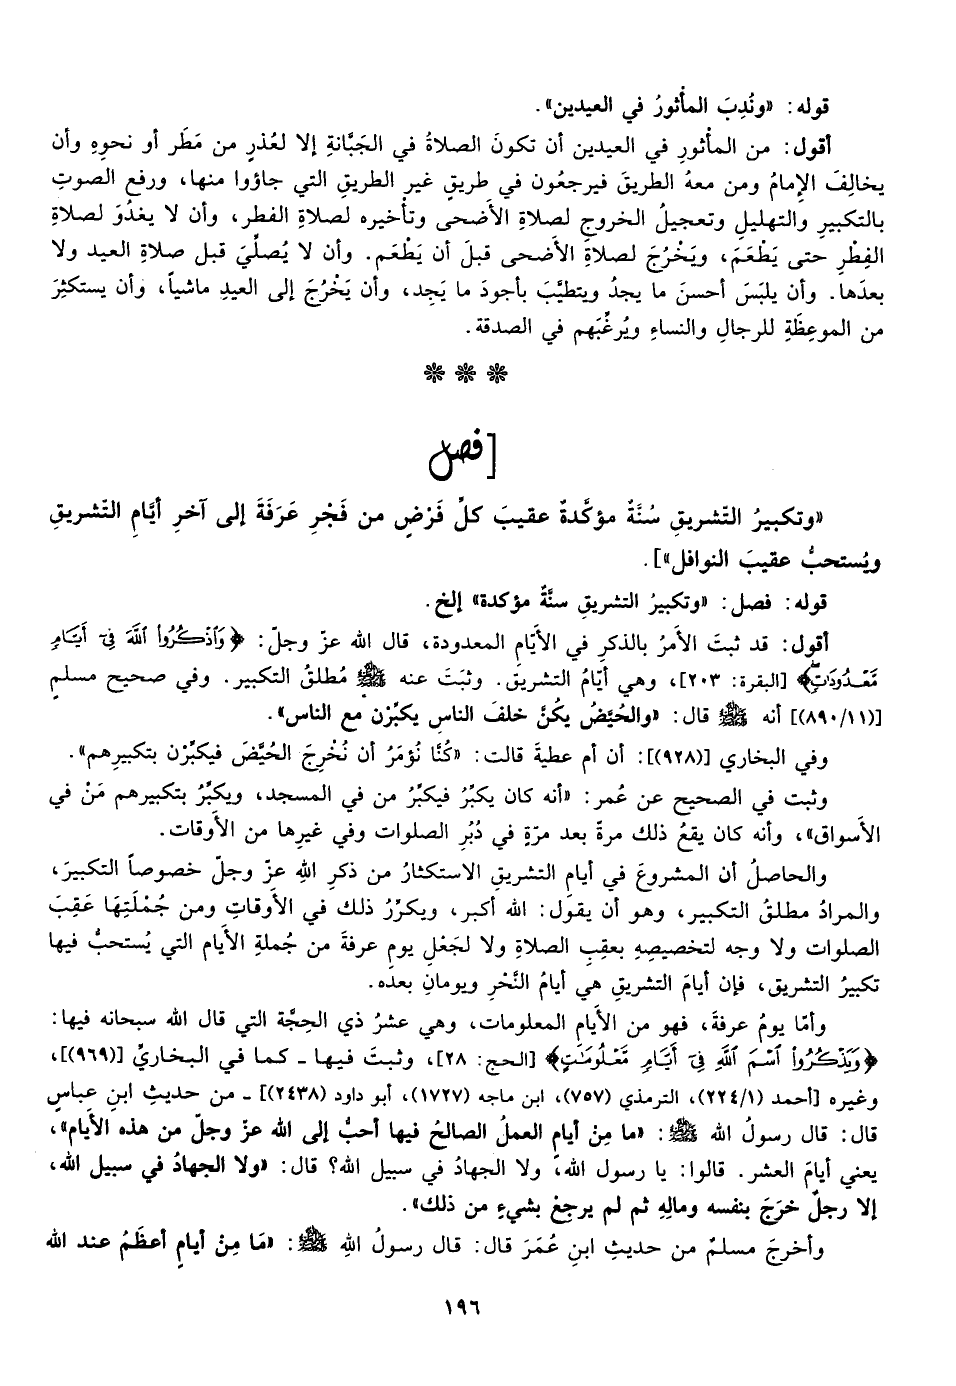 قوله: «ونُدِبَ المأْثورُ في العيدين».
أقول: من المأْثورِ في العيدين أن تكونَ الصلاةُ في الجَبَّانةِ إلا لعُذرٍ من مَطَر أو نحوِهِ وأن
يخالِفَ الإمامُ ومن معهُ الطريقَ فيرجعُون في طريقٍ غيرِ الطريقِ التي جاؤوا منها، ورفع الصوتِ
بالتكبيرِ والتهليلِ وتعجيلُ الخروجِ لصلاةِ الأضحى وتأخيره لصلاةِ الفطر، وأن لا يغدُوَ لصلاةِ
الفِطْرِ حتى يَطْعَمَ، ويَخْرُجَ لصلاةِ الأضحى قبلَ أن يَطْعَم. وأن لا يُصلِّيَ قبل صلاةِ العيد ولا
بعدَها. وأن يلبَسَ أحسنَ ما يجدُ ويتطيَّبَ بأجودَ ما يَجِد، وأن يَخْرُجَ إلى العيدِ ماشياً، وأن يستكثِرَ
من الموعِظَةِ للرجالِ والنساءِ ويُرغِّبَهم في الصدقة.
❁ ❁ ❁
[فصل
«وتكبيرُ التّشريقِ سُنَّةٌ مؤكَّدةٌ عقيبَ كلِّ فَرْضٍ من فَجْرِ عَرَفَةَ إلى آخرِ أيَّامِ التّشريقِ
ويُستحبُّ عقيبَ النوافل»].
قوله: فصل: «وتكبيرُ التشريقِ سنَّةٌ مؤكدة» إلخ.
أقول: قد ثبتَ الأمرُ بالذكرِ في الأيّامِ المعدودة، قال الله عزّ وجلّ: ﴿وَاذْكُرُواْ اللَّهَ فِي أَيَّامٍ
مَّعْدُودَاتٍ﴾ [البقرة: ٢٠٣]، وهي أيّامُ التشريق. وثبَتَ عنه ﷺ مُطلقُ التكبير. وفي صحيح مسلمٍ
[(٨٩٠/١١)] أنه ﷺ قال: «والحُيَّضُ يكُنَّ خلفَ الناسِ يكبِّرْن مع الناس».
وفي البخاري [(٩٢٨)]: أن أم عطيةَ قالت: «كُنَّا نُؤمَرُ أن نُخْرِجَ الحُيَّضَ فيكبِّرْن بتكبيرِهم».
وثبت في الصحيح عن عُمر: «أنه كان يكبِّرُ فيكبِّرُ من في المسجد، ويكبِّرُ بتكبيرهم مَنْ في
الأسواق»، وأنه كان يقعُ ذلك مرةً بعد مرّةٍ في دُبُرِ الصلوات وفي غيرِها من الأوقات.
والحاصلُ أن المشروعَ في أيامِ التشريقِ الاستكثارُ من ذكرِ اللهِ عزّ وجلّ خصوصاً التكبيرَ،
والمرادُ مطلقُ التكبير، وهو أن يقولَ: الله أكبر، ويكرِّرُ ذلك في الأوقاتِ ومن جُمْلَتِهَا عَقِبَ
الصلوات ولا وجه لتخصيصِهِ بعقِبِ الصلاةِ ولا لجَعْلِ يومِ عرفةَ من جُملةِ الأيام التي يُستحبُّ فيها
تكبيرُ التشريق، فإن أيامَ التشريقِ هي أيامُ النَّحْرِ ويومانِ بعدَه.
وأمّا يومُ عرفةَ، فهو من الأيامِ المعلومات، وهي عشرُ ذي الحِجَّة التي قال الله سبحانه فيها:
﴿وَيَذْكُرُواْ اسْمَ اللَّهِ فِي أَيَّامٍ مَّعْلُومَاتٍ﴾ [الحج: ٢٨]، وثبتَ فيها ـ كما في البخاريِّ [(٩٦٩)]،
وغيره [أحمد (٢٢٤/١)، الترمذي (٧٥٧)، ابن ماجه (١٧٢٧)، أبو داود (٢٤٣٨)] ـ من حديثِ ابنِ عباسٍ
قال: قال رسولُ الله ﷺ: «ما مِنْ أيامٍ العملُ الصالحُ فيها أحبُّ إلى الله عزّ وجلّ من هذه الأيام»،
يعني أيامَ العشر. قالوا: يا رسول الله، ولا الجهادُ في سبيل الله؟ قال: «ولا الجهادُ في سبيل الله،
إلا رجلٌ خرَجَ بنفسه ومالِهِ ثم لم يرجِعْ بشيءٍ من ذلك».
وأخرجَ مسلمٌ من حديثِ ابنِ عُمَرَ قال: قال رسولُ اللهِ ﷺ: «مَا مِنْ أيامٍ أعظَمُ عند الله
١٩٦